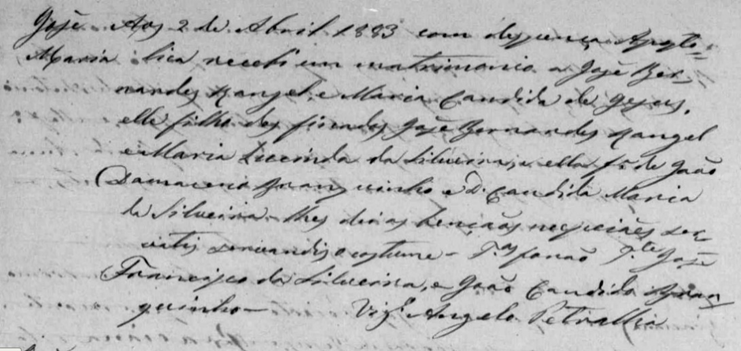 José Aos 2 de Abril 1883 com despença Aposto-
Maria lica recebi em matrimonio a José Ber-
nardes Rangel e Maria Candida de Jesus,
elle filho dos finados José Bernardes Rangel
e Maria Lucinda da Silveira, e ella fª de João
Damaceno Junquinho e D. Candida Maria
da Silveira lhes dei as bençãos nupciaes ser-
vatis servandis o costume - Tas forão Te José
Francisco da Silveira, e João Candido
quinho - Vigº Angelo